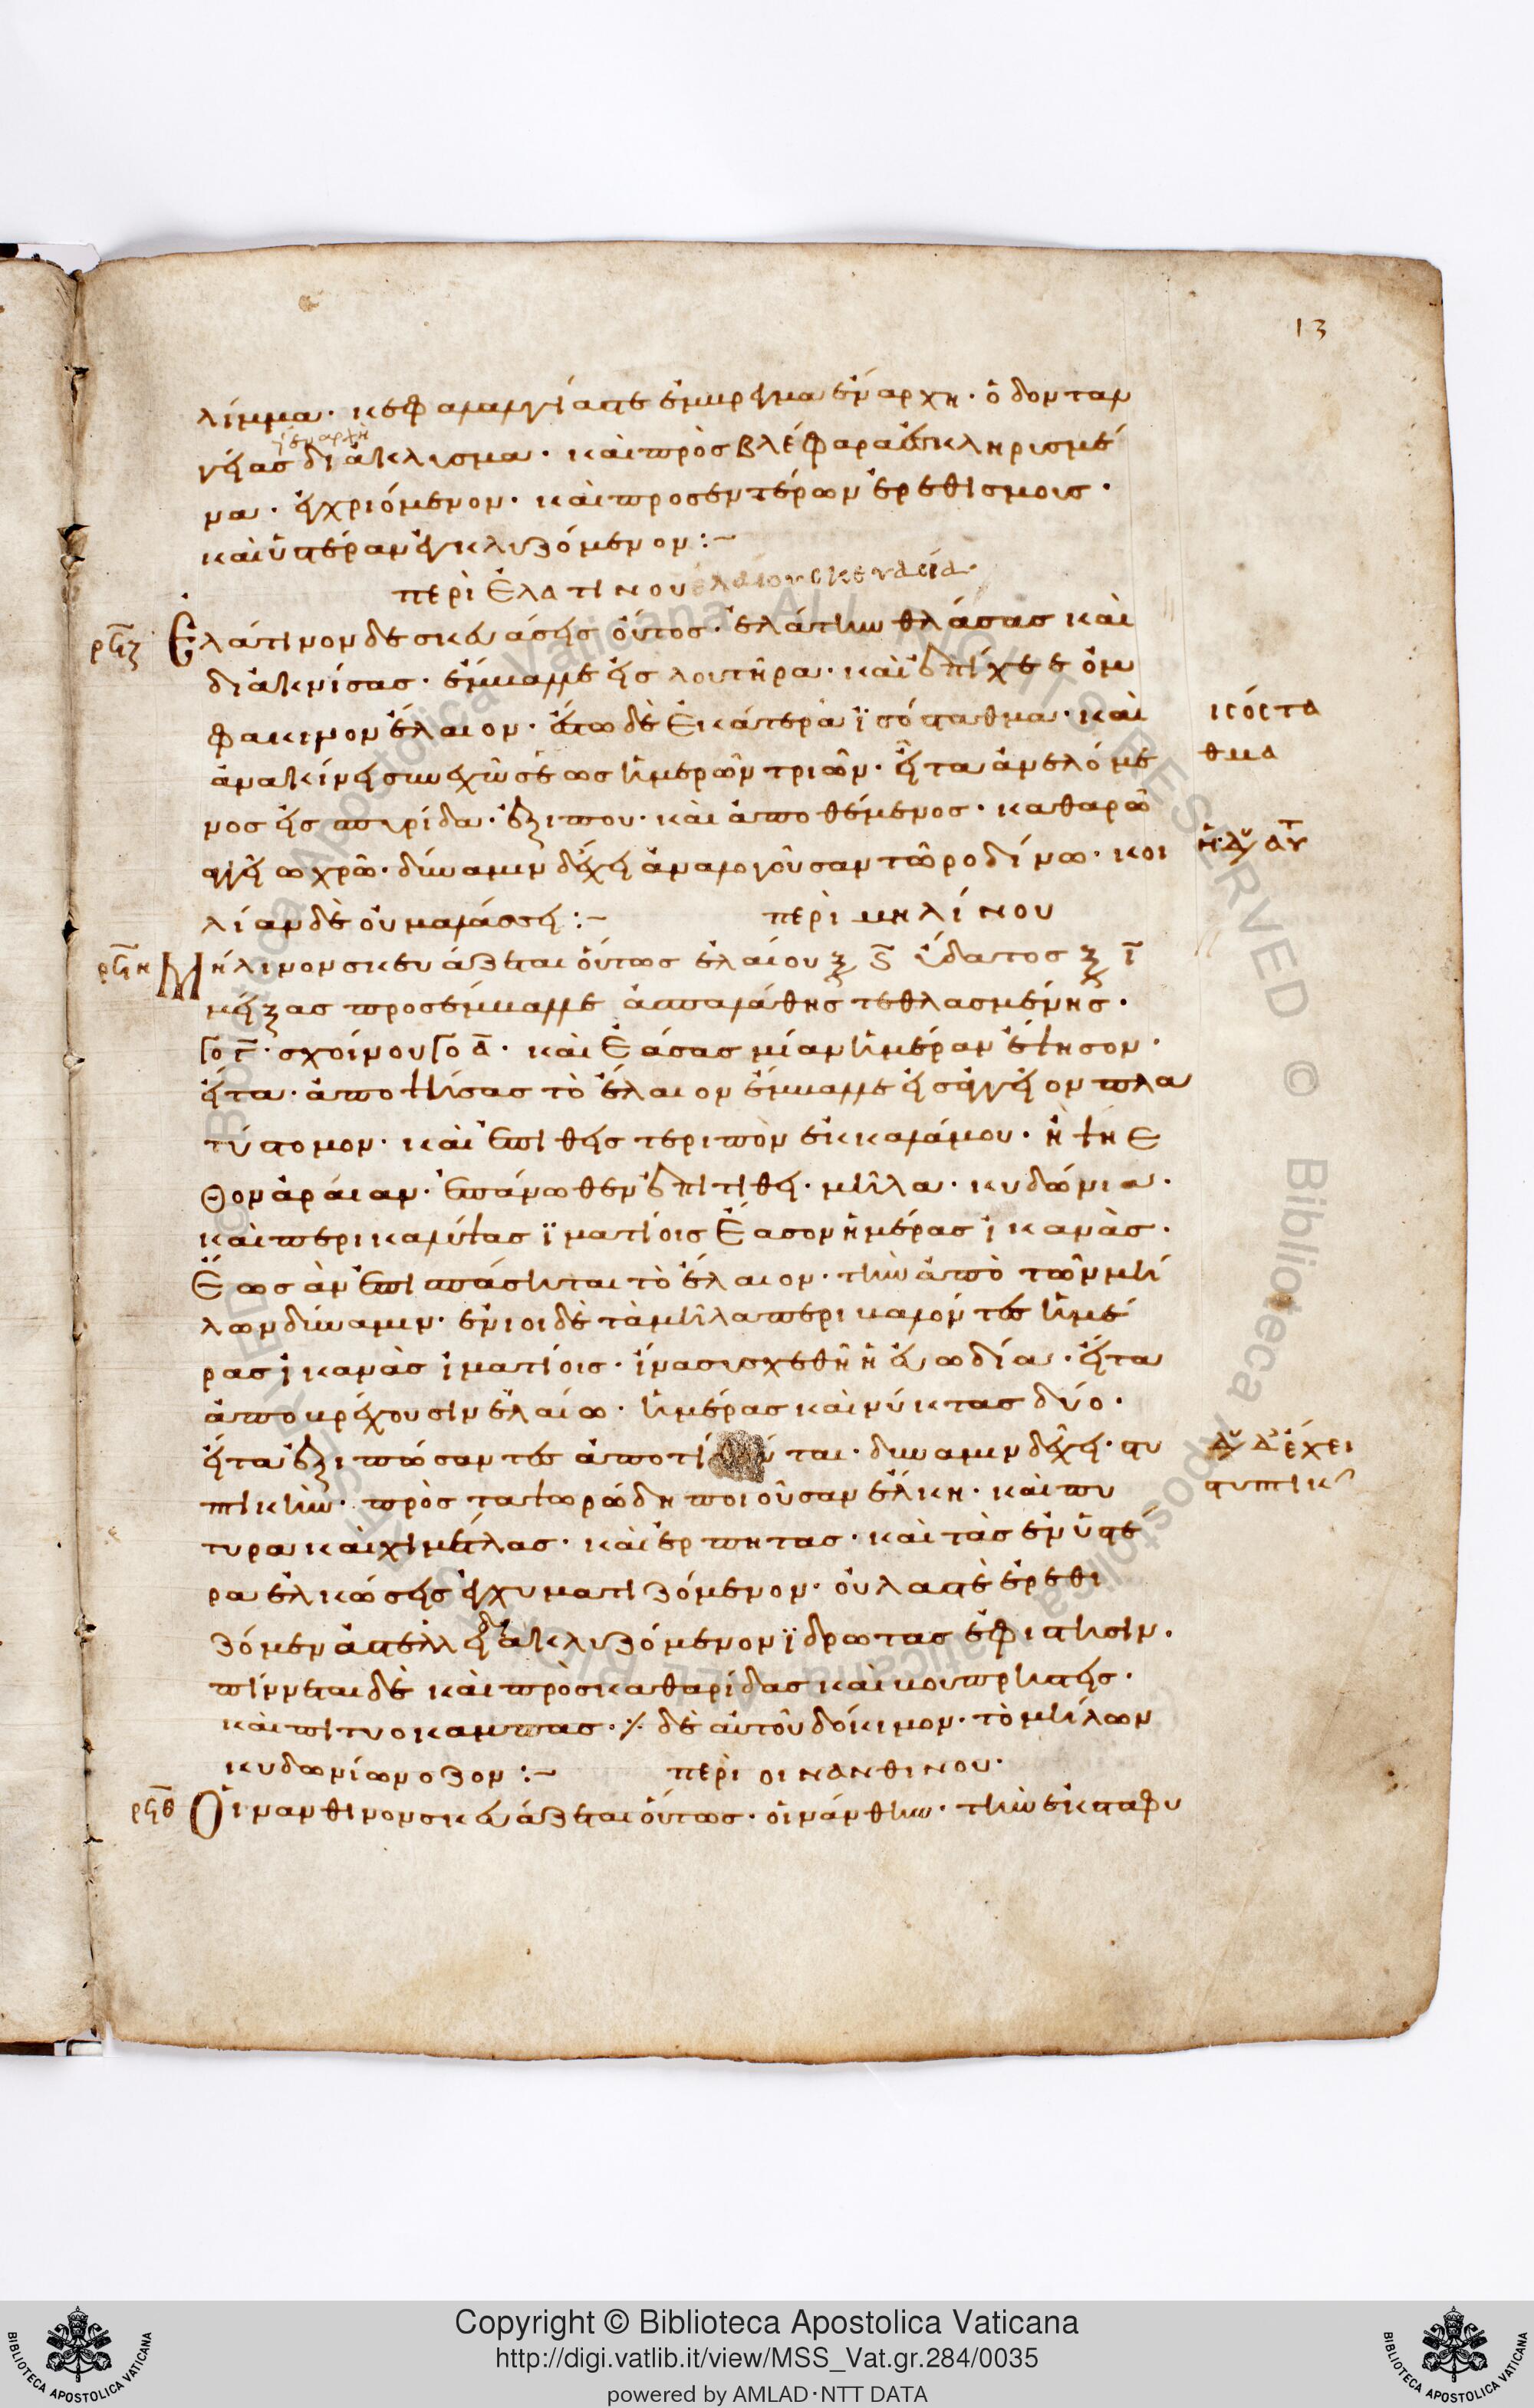 13
λίμμα· κεφαλαλγίας τε ἔμβρεγμα ἐν ἀρχῆ· ὀδονταλ
γείας διάκλυσμα· καὶ πρὸς βλέφαρα ἐσκληρυσμέ
ἐν ἀρχῆ
να· ἐγχριόμενον· καὶ πρὸς ἐντέρων ἐρεθισμοῖς·
καὶ ὑστέραν ἐγκλυζόμενον :~
περὶ ἐλατίνου ἐλαίου σκευασία·
ρϟζ Ἐλάτινον δὲ σκευάσεις οὕτος· ἐλάτην θλάσας καὶ
διακνίσας· ἔμβαλλε εἰς λουτῆρα· καὶ ἐπίχεε ὀμ
φάκινον ἔλαιον· ἔστω δὲ ἑκάτερα ϊσόσταθμα· καὶ
ϊσόστα
θμα
ἀνακίνησιν ἐχῶ ἕως ἡμερῶν τριῶν· εἶτα ἀνελόμε
νος εἰς σπυρίδα· ἐξίπου· καὶ ἀποθέμενος· καθαρῶ
ἀγγείω χρῶ· δύναμιν δ' ἔχει ἀναλογοῦσαν τῶ ροδίνω· κοι
λίαν δὲ οὐ μαλάσσει :~
περὶ μηλίνου
ρϟη Μήλινον σκευάζεται οὕτως ἐλαίου ξ ϛ ὕδατος ξ ι
μείξας προσέμβαλλε ἀσπαλάθης τεθλασμένης·
Γο γ· σχοίνου Γο α· καὶ ἐάσας μίαν ἡμέραν ἕψησον·
εἶτα· ἀποηθήσας τὸ ἔλαιον ἔμβαλλε εἰς ἀγγεῖον πλα
τύστομον· καὶ ἐπιθεὶς τεριπὸν ἐκ καλάμου· ἢ ψίε
θον ἀραίαν· ἐπάνωθεν ἐπιτίθει· μῆλα· κυδώνια·
καὶ περικαλύψας ϊματίοις ἔασον ἡμέρας ἱκανὰς·
ἕως ἂν ἐπισπάσηται τὸ ἔλαιον· τὴν ἀπὸ τῶν μή
λων δύναμιν· ἔνιοι δὲ τὰ μῆλα περιβαλόντες ἡμέ
ρας ἱκανὰς ἱματίοις· ἵνα συσχεθῆ ἡ εὐωδία· εἶτα
ἀποβρέχουσιν ἐλαίω· ἡμέρας καὶ νύκτας δύο·
εἶτα ἐξιπώσαντες ἀποτί ται· δύναμιν δ' ἔχει· στυ
πτικὴν· πρὸς τα ψωρώδη ποιοῦσαν ἕλκη· καὶ πι
τυρα καὶ χίμετλας· καὶ ἕρπητας· καὶ τὰς ἐν ὑστέ
ρα ἑλκώσεις ἐγχυματιζόμενον· οὖλά τε ἐρεθι
ζόμεν ἀστέλλει διακλυζόμενον ϊδρῶτας ἐφίστησιν·
πίνεται δὲ καὶ πρὸς κανθαρίδας καὶ βουπρήστεις·
καὶ πιτυοκάμπας· δὲ αὐτοῦ δόκιμον· τὸ μήλων
κυδωνίων ὄζον :~
περὶ οινανθινου·
ρϟθ Οἰνάνθινον σκευάζεται οὕτως· οἰνάνθην· τὴν ἐκ σταφυ
Copyright © Biblioteca Apostolica Vaticana
http://digi.vatlib.it/view/MSS_Vat.gr.284/0035
powered by AMLAD·NTT DATA
BIBLIOTECA APOSTOLICA VATICANA
BIBLIOTECA APOSTOLICA VATICANA